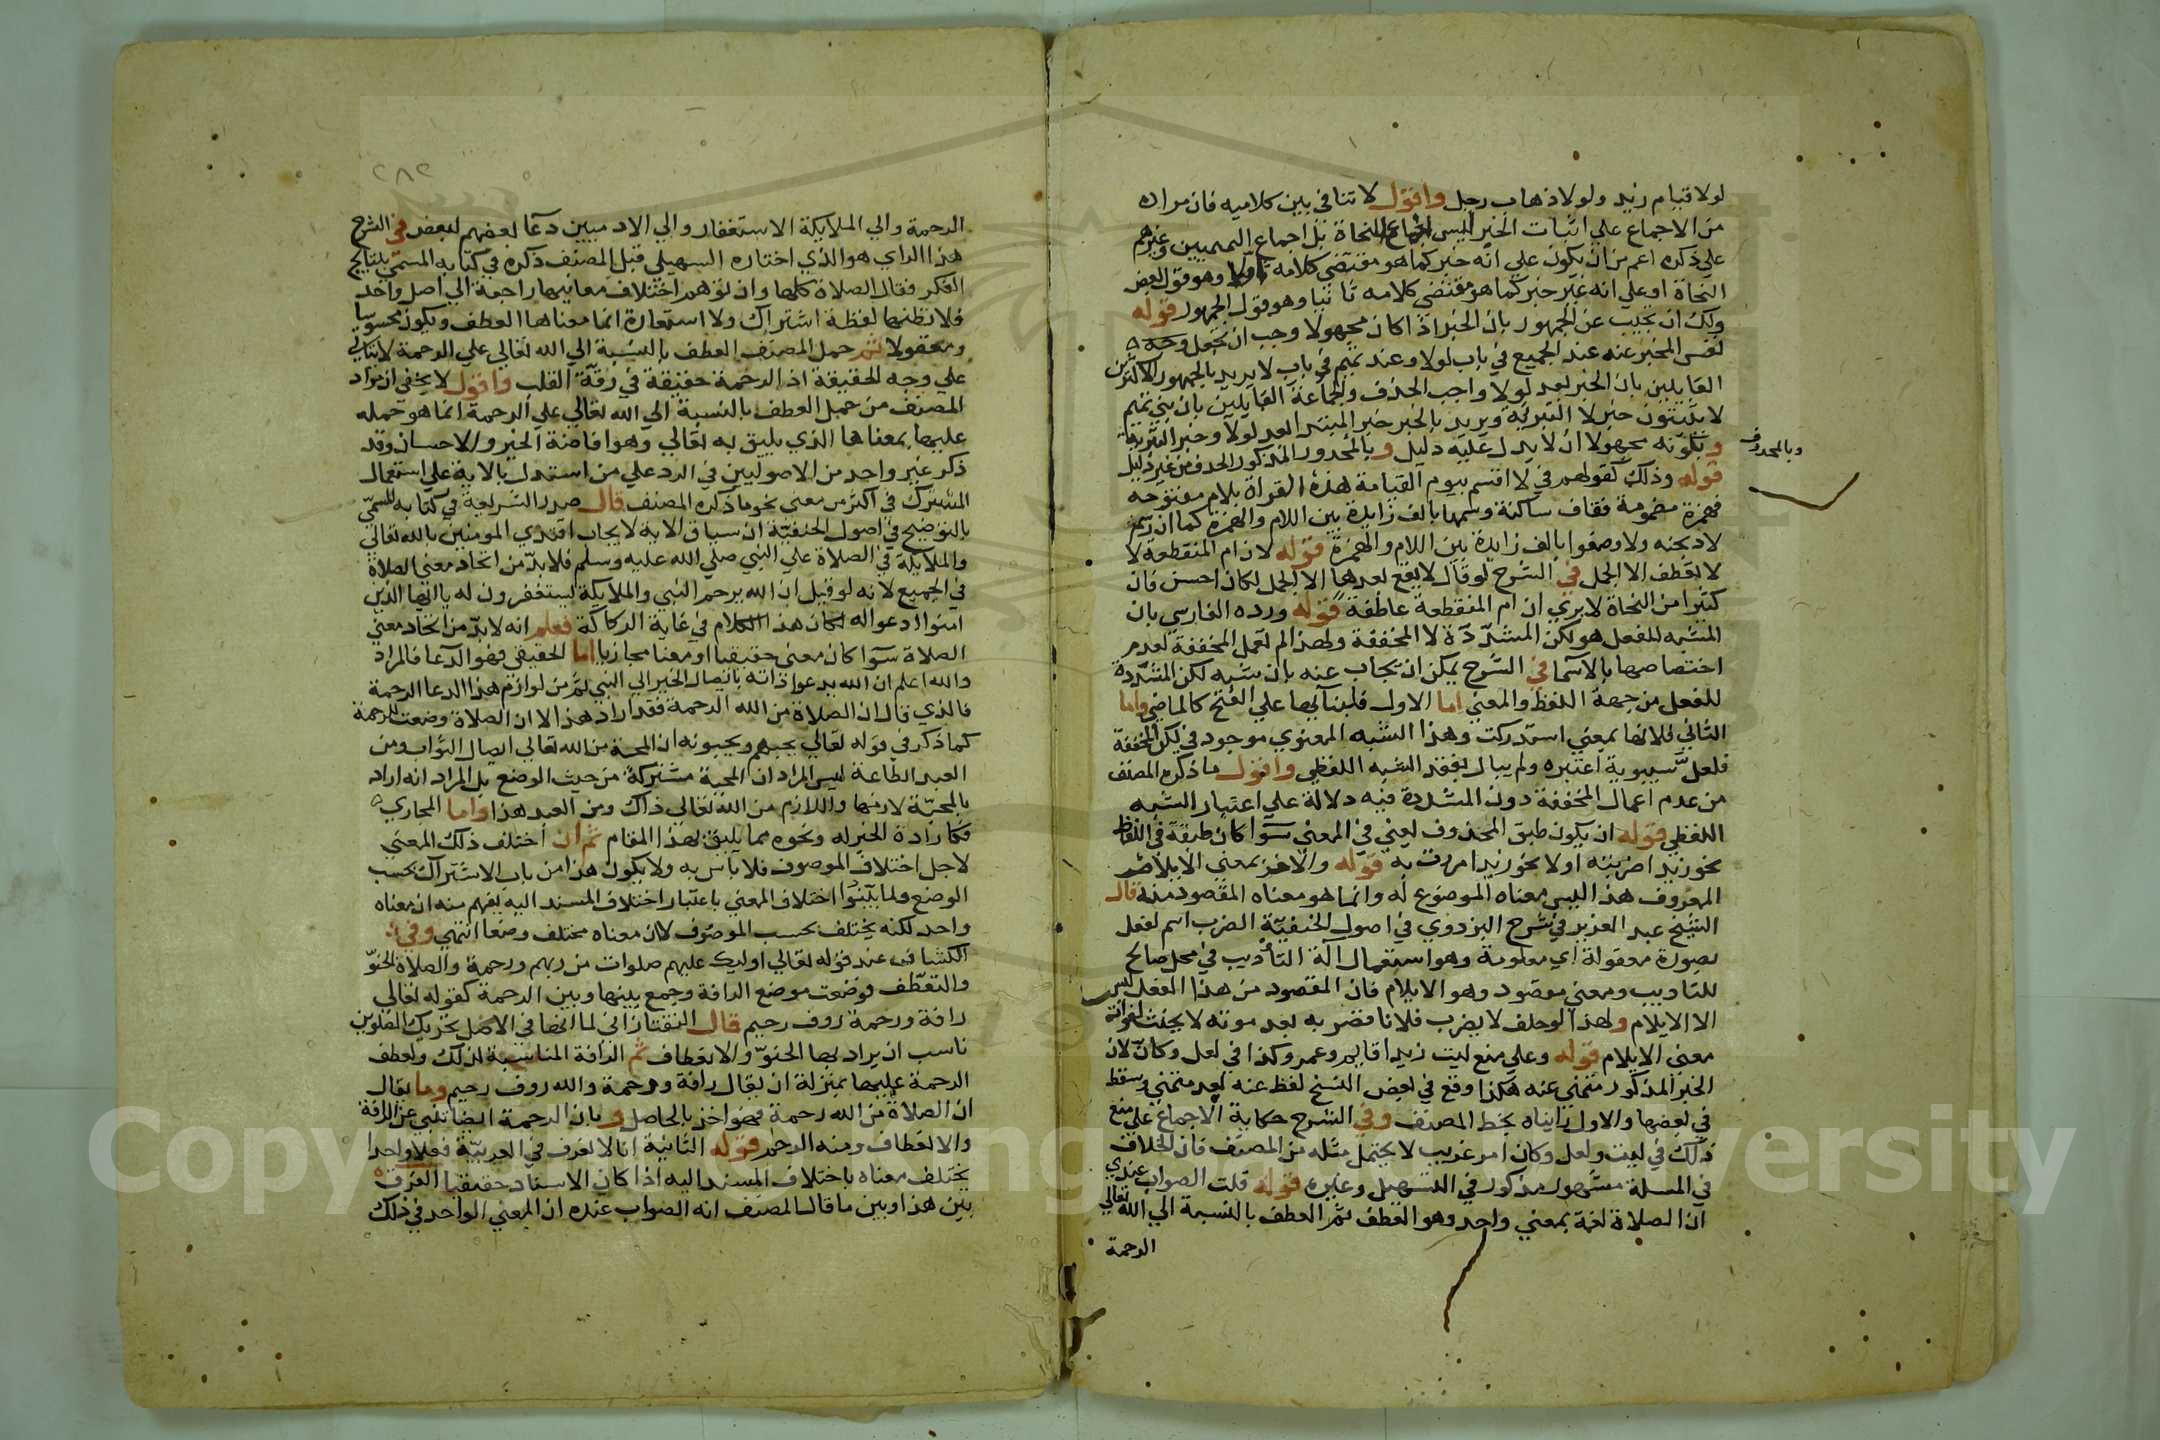 لولا قيام زيد ولولا ذهاب رجل واقول لا تنافي بين كلاميه فان مراده
من الاجماع علي اثبات الخبر ليس اجماع النحاة بل اجماع التميميين وغيرهم
علي ذكره اعم من ان يكون علي انه خبر كما هو مقتضي كلامه اولا وهو قول بعض
النحاة او علي انه غير خبر كما هو مقتضي كلامه ثانيا وهو قول الجمهور قوله
ولك ان تجيب عن الجمهور بان الخبر اذا كان مجهولا وجب ان يجعل وحده
نفس المخبر عنه عند الجميع في باب لولا وعند تميم في باب لا يريد بالجمهور الاكثرين
القايلين بان الخبر بعد لولا واجب الحذف والجماعة القايلين بان بني تميم
لا يثبتون خبر لا التبرئة ويريد بالخبر خبر المبتدا بعد لولا وخبر التبرئة
وبكونه مجهولا ان لا يدل عليه دليل وبالمحذور المذكور الحذف من غير دليل
وبالمحذوف
قوله وذلك كقولهم في لا اقسم بيوم القيامة هذه القراة بلام مفتوحة
فهمزة مضمومة فقاف ساكنة وسمها بالف زايدة بين اللام والهمزة كما ان رسم
لاذبحنه ولاوضعوا بالف زايدة بين اللام والهمزة قوله لان ام المنقطعة لا
لا تعطف الا الجمل في الشرح لو قال لا يقع بعدها الا الجمل لكان احسن فان
كثيرا من النحاة لا يري ان ام المنقطعة عاطفة قوله ورده الفارسي بان
المشبه للفعل هو لكن المشددة لا المخففة ولهذا لم تعمل المخففة لعدم
اختصاصها بالاسما في الشرح يمكن ان يجاب عنه بان شبه لكن المشددة
للفعل من جهة اللفظ والمعني اما الاول فلبنائها علي الفتح كالماضي واما
الثاني فلانها بمعني استدركت وهذا الشبه المعنوي موجود في لكن المخففة
فلعل سيبويه اعتبره ولم يبال بفقد الشبه اللفظي واقول ما ذكره المصنف
من عدم اعمال المخففة دون المشددة فيه دلالة علي اعتبار الشبه
اللفظي قوله ان يكون طبق المحذوف يعني في المعني سوا كان طبقه في اللفظ
نحو زيدا ضربته او لا نحو زيدا مررت به قوله والاخر بمعني الايلام
المعروف هذا ليس معناه الموضوع له وانما هو معناه المقصود منه قال
الشيخ عبد العزيز في شرح البزدوي في اصول الحنفية الضرب اسم لفعل
بصورة معقولة اي معلومة وهو استعمال الة التأديب في محل صالح
للتاديب ومعني مقصود وهو الايلام فان المقصود من هذا الفعل ليس
الا الايلام ولهذا لو حلف لا يضرب فلانا فضربه بعد موته لا يحنث لفوات
معني الايلام قوله وعلي منع ليت زيدا قايم وعمرو وكذا في لعل وكان لان
الخبر المذكور متمني عنه هكذا وقع في بعض النسخ لفظ عنه بعد متمني وسقط
في بعضها والاول رايناه بخط المصنف وفي الشرح حكاية الاجماع علي منع
ذلك في ليت ولعل وكان امر غريب لا يحتمل مثله من المصنف فان الخلاف
في المسلة مشهور مذكور في التسهيل وغيره قوله قلت الصواب عندي
ان الصلاة لغة بمعني واحد وهو العطف ثم العطف بالنسبة الي الله تعالي
الرحمة
٢٨٢
الرحمة والي الملايكة الاستغفار والي الادميين دعا بعضهم لبعض في الشرح
هذا الراي هو الذي اختاره السهيلي قبل المصنف ذكره في كتابه المسمي بنتايج
الفكر فقال الصلاة كلها وان توهم اختلاف معانيها راجعة الي اصل واحد
فلا تظنها لفظة اشتراك ولا استعارة انما معناها العطف ويكون محسوسا
ومعقولا ثم حمل المصنف العطف بالنسبة الي الله تعالي علي الرحمة لا يتاتي
علي وجه الحقيقة اذ الرحمة حقيقة في رقة القلب واقول لا يخفي ان مراد
المصنف من حمل العطف بالنسبة الي الله تعالي علي الرحمة انما هو حمله
عليها بمعناها الذي يليق به تعالي وهو افاضة الخير والاحسان وقد
ذكر غير واحد من الاصوليين في الرد علي من استدل بالاية علي استعمال
المشترك في اكثر من معني نحو ما ذكره المصنف قال صدر الشريعة في كتابه المسمي
بالتوضيح في اصول الحنفية ان سياق الاية لايجاب اقتدي المومنين بالله تعالي
والملايكة في الصلاة علي النبي صلي الله عليه وسلم فلا بد من اتحاد معني الصلاة
في الجميع لانه لو قيل ان الله يرحم النبي والملايكة يستغفرون له يا ايها الذين
امنوا ادعوا له لكان هذا الكلام في غاية الركاكة فعلم انه لا بد من اتحاد معني
الصلاة سوا كان معني حقيقيا او معنا مجازيا اما الحقيقي فهو الدعا فالمراد
والله اعلم ان الله يدعوا ذاته بايصال الخير الي النبي ثم من لوازم هذا الدعا الرحمة
فالذي قال ان الصلاة من الله الرحمة فقد اراد هذا لا ان الصلاة وضعت للرحمة
كما ذكر في قوله تعالي يحبهم ويحبونه ان المحبة من الله تعالي ايصال الثواب ومن
العبد الطاعة ليس المراد ان المحبة مشتركة من حيث الوضع بل المراد انه اراد
بالمحبة لازمها واللازم من الله تعالي ذاك ومن العبد هذا واما المجازي
فكارادة الخير له ونحوه مما يليق بهذا المقام ثم ان اختلف ذلك المعني
لاجل اختلاف الموصوف فلا باس به ولا يكون هذا من باب الاشتراك بحسب
الوضع ولما بينوا اختلاف المعني باعتبار اختلاف المسند اليه يفهم منه ان معناه
واحد لكنه يختلف بحسب الموصوف لا ان معناه مختلف وضعا انتهي وفي
الكشاف عند قوله تعالي اوليك عليهم صلوات من ربهم ورحمة والصلاة الحنو
والتعطف فوضعت موضع الرافة وجمع بينها وبين الرحمة كقوله تعالي
رافة ورحمة روف رحيم قال التفتازاني لما انها في الاصل تحريك الصلوين
ناسب ان يراد بها الحنو والانعطاف ثم الرافة المناسبة لذلك وتعطف
الرحمة عليها بمنزلة ان يقال رافة ورحمة والله روف رحيم وما يقال
ان الصلاة من الله رحمة فهو اخذ بالحاصل وبان الرحمة ايضا تنبي عن الرافة
والانعطاف ومنه الرحم قوله الثانية انا لا نعرف في العربية فعلا واحدا
يختلف معناه باختلاف المسند اليه اذا كان الاسناد حقيقيا الفرق
بين هذا وبين ما قال المصنف انه الصواب عنده ان المعني الواحد في ذلك